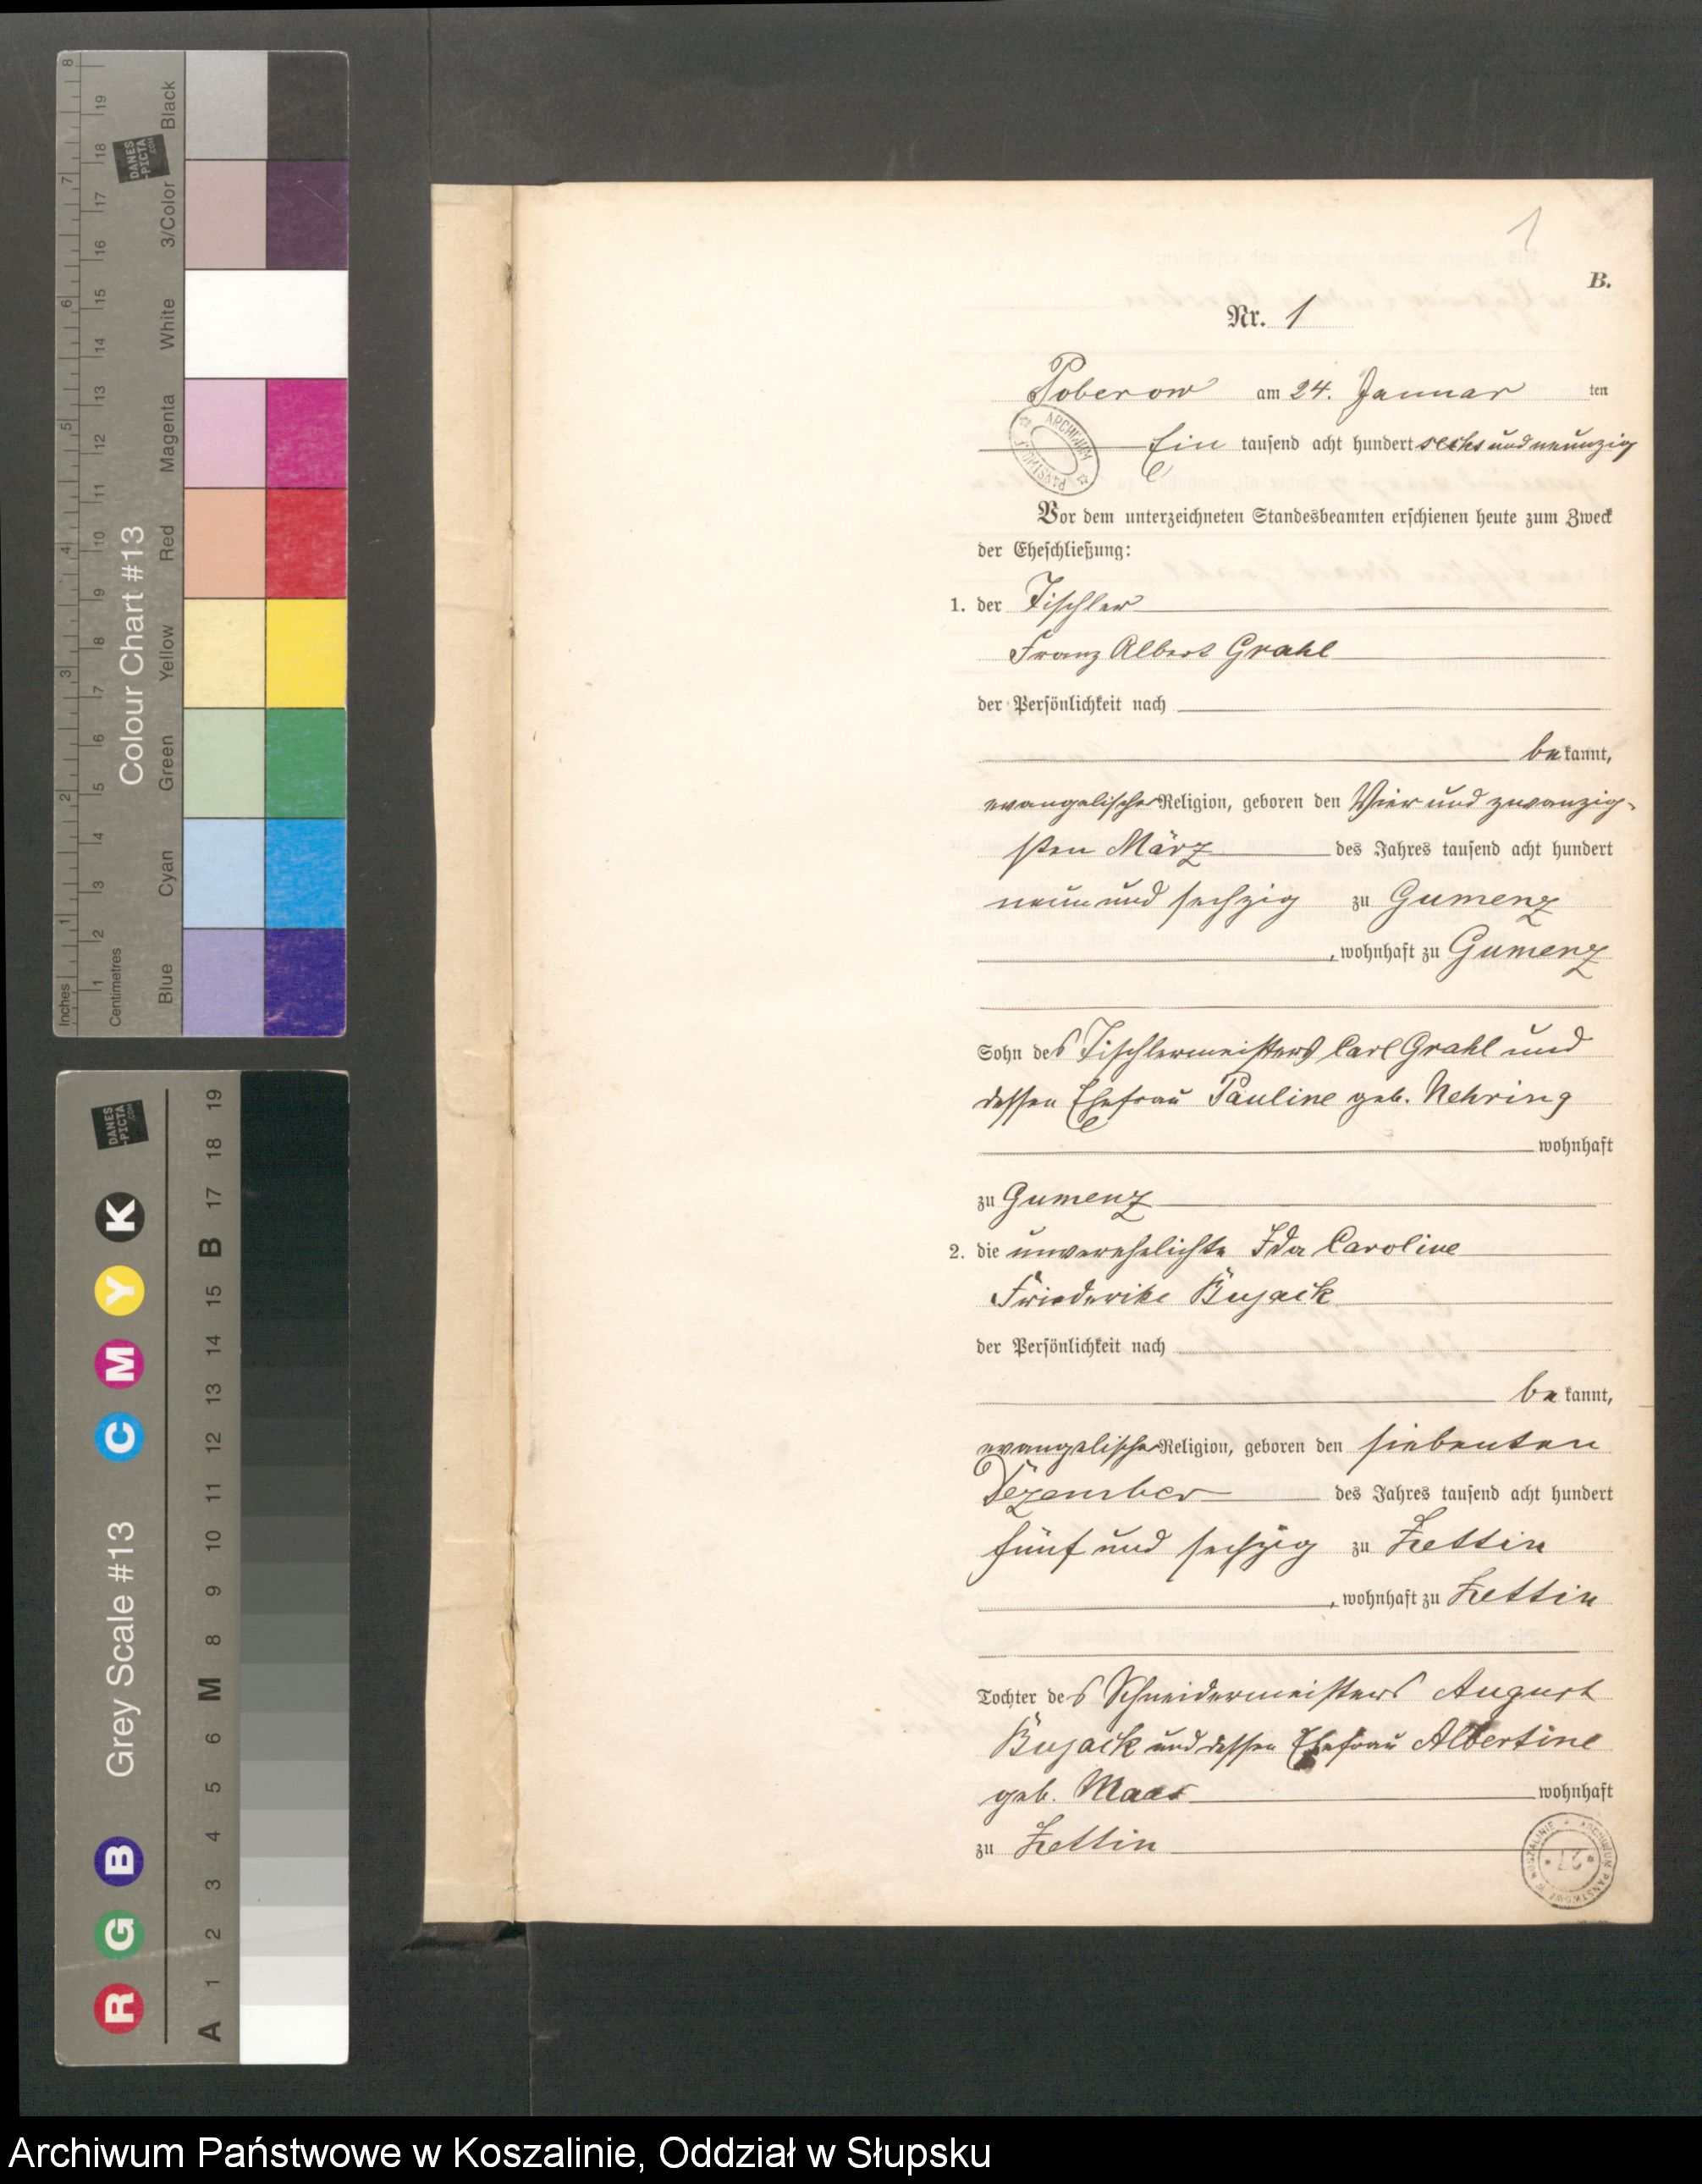 1
B.
Nr. 1
Poberow am 24. Januar ten
Ein tausend acht hundert sechs und neunzig
ARCHIWUM PAŃSTW
Vor dem unterzeichneten Standesbeamten erschienen heute zum Zweck
der Eheschließung:
1. der Tischler
Franz Albert Grahl
der Persönlichkeit nach
bekannt,
evangelischer Religion, geboren den Vier und zwanzig-
sten März des Jahres tausend acht hundert
neun und sechzig zu Gumenz
, wohnhaft zu Gumenz
Sohn des Tischlermeisters Carl Grahl und
dessen Ehefrau Pauline geb. Nehring
wohnhaft
zu Gumenz
2. die unverehelichte Ida Caroline
Friederike Bujack
der Persönlichkeit nach
bekannt,
evangelischer Religion, geboren den siebenten
Dezember des Jahres tausend acht hundert
fünf und sechzig zu Zettin
, wohnhaft zu Zettin
Tochter des Schneidermeisters August
Bujack und dessen Ehefrau Albertine
geb. Maas wohnhaft
zu Zettin
ARCHIWUM PAŃSTWOWE W KOSZALINIE
Colour Chart #13
Inches
Centimetres
1 2 3 4 5 6 7 8
1 2 3 4 5 6 7 8 9 10 11 12 13 14 15 16 17 18 19
Blue Cyan Green Yellow Red Magenta White 3/Color Black
DANES
-PICTA
.COM
Grey Scale #13
R G B C M Y K
A 1 2 3 4 5 6 M 8 9 10 11 12 13 14 15 B 17 18 19
DANES
-PICTA
.COM
Archiwum Państwowe w Koszalinie, Oddział w Słupsku